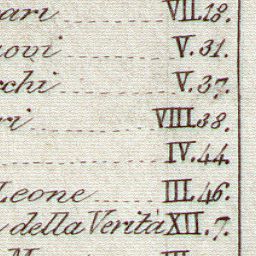 ari VII.18.
uovi V.31.
rchi V.37.
ri VIII.38.
IV.44.
Leone III.46.
della Verità XII.7.